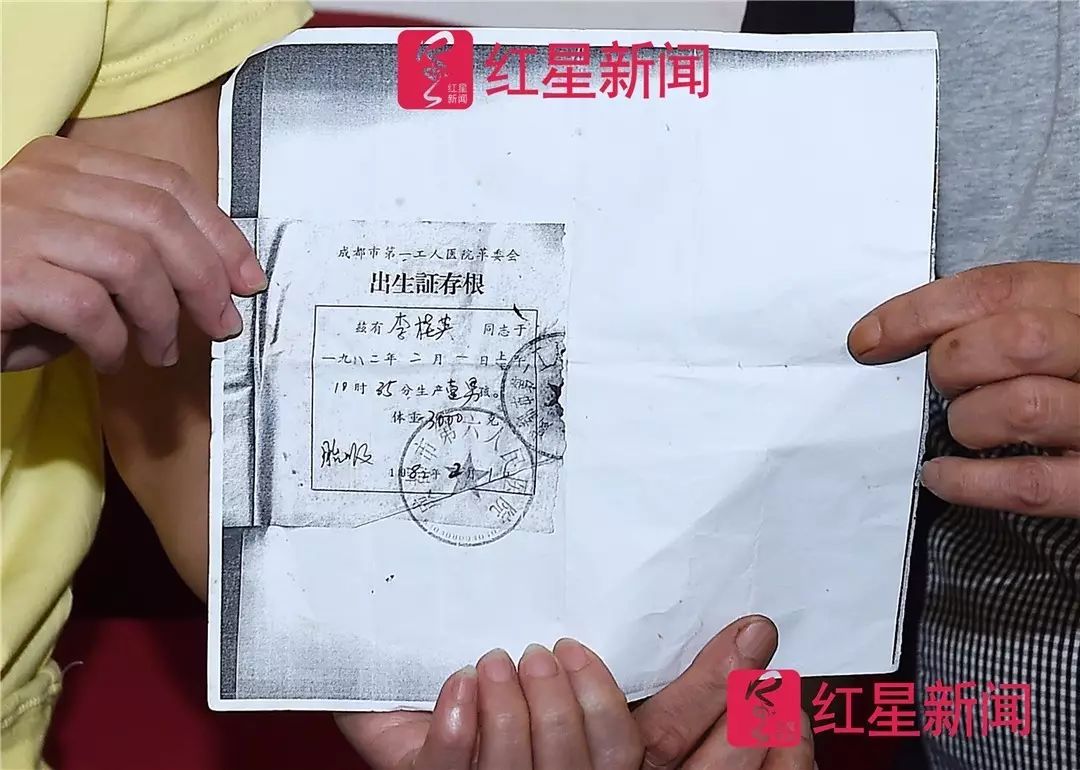 红星新闻
红星新闻
成都市第一工人医院革委会
出生証存根
兹有 李桂英 同志于
一九八二年 二月 一日上午
10时 35分生产壹男孩。
体重3000克
市第六人民医院
红星新闻